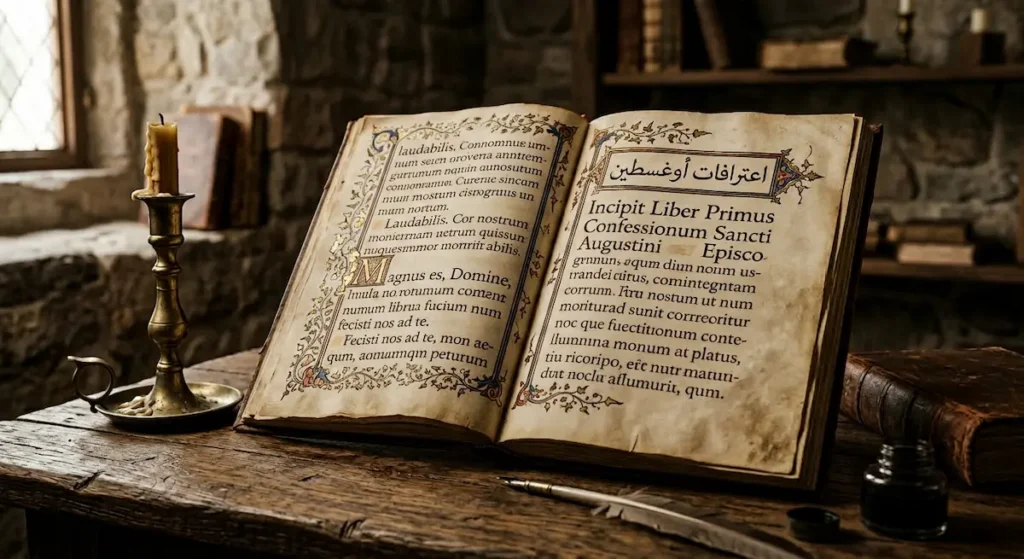 laudabilis. Connomnuc um-
mum seen oroverra anntrem-
gurrumum nquin aunosutum
connonanue, Curenie sincam
mum mostum cisrogrius un
mum nortum.
Laudabilis. Cor nostrum
monicrnam uetrum quissun
nuquesmmor morrrit abilis.
Magnus es, Domine,
no rorumum coment
numum librua fucium num
fecisti nos ad te.
Fecisti nos ad te, mon ae-
qum, peturum
اعترافات أوغسطين
Incipit Liber Primus
Confessionum Sancti
Augustini Episco
aqum diun noum us-
citus, comintegntam
corrum. nostum ut num
moriturad sunit corrreoritur
noc que fuectitionum conte-
monum at platus,
tiu ricoripo, nutr matun-
dut noclu aflumurit, qum.